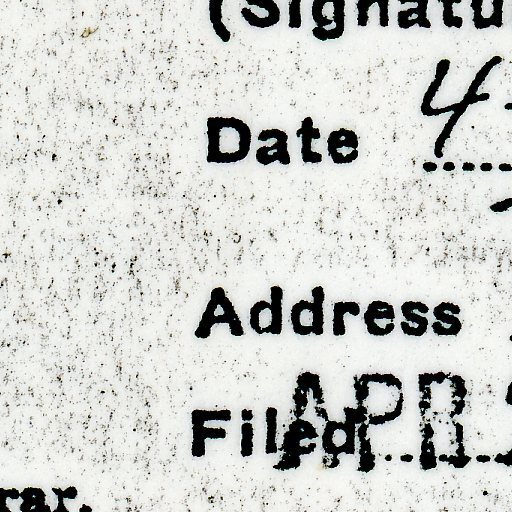 (Signatu
Date 4
Address
Filed APR
rar.